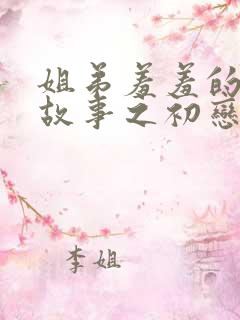 姐弟羞羞的
故事之初戀
李姐